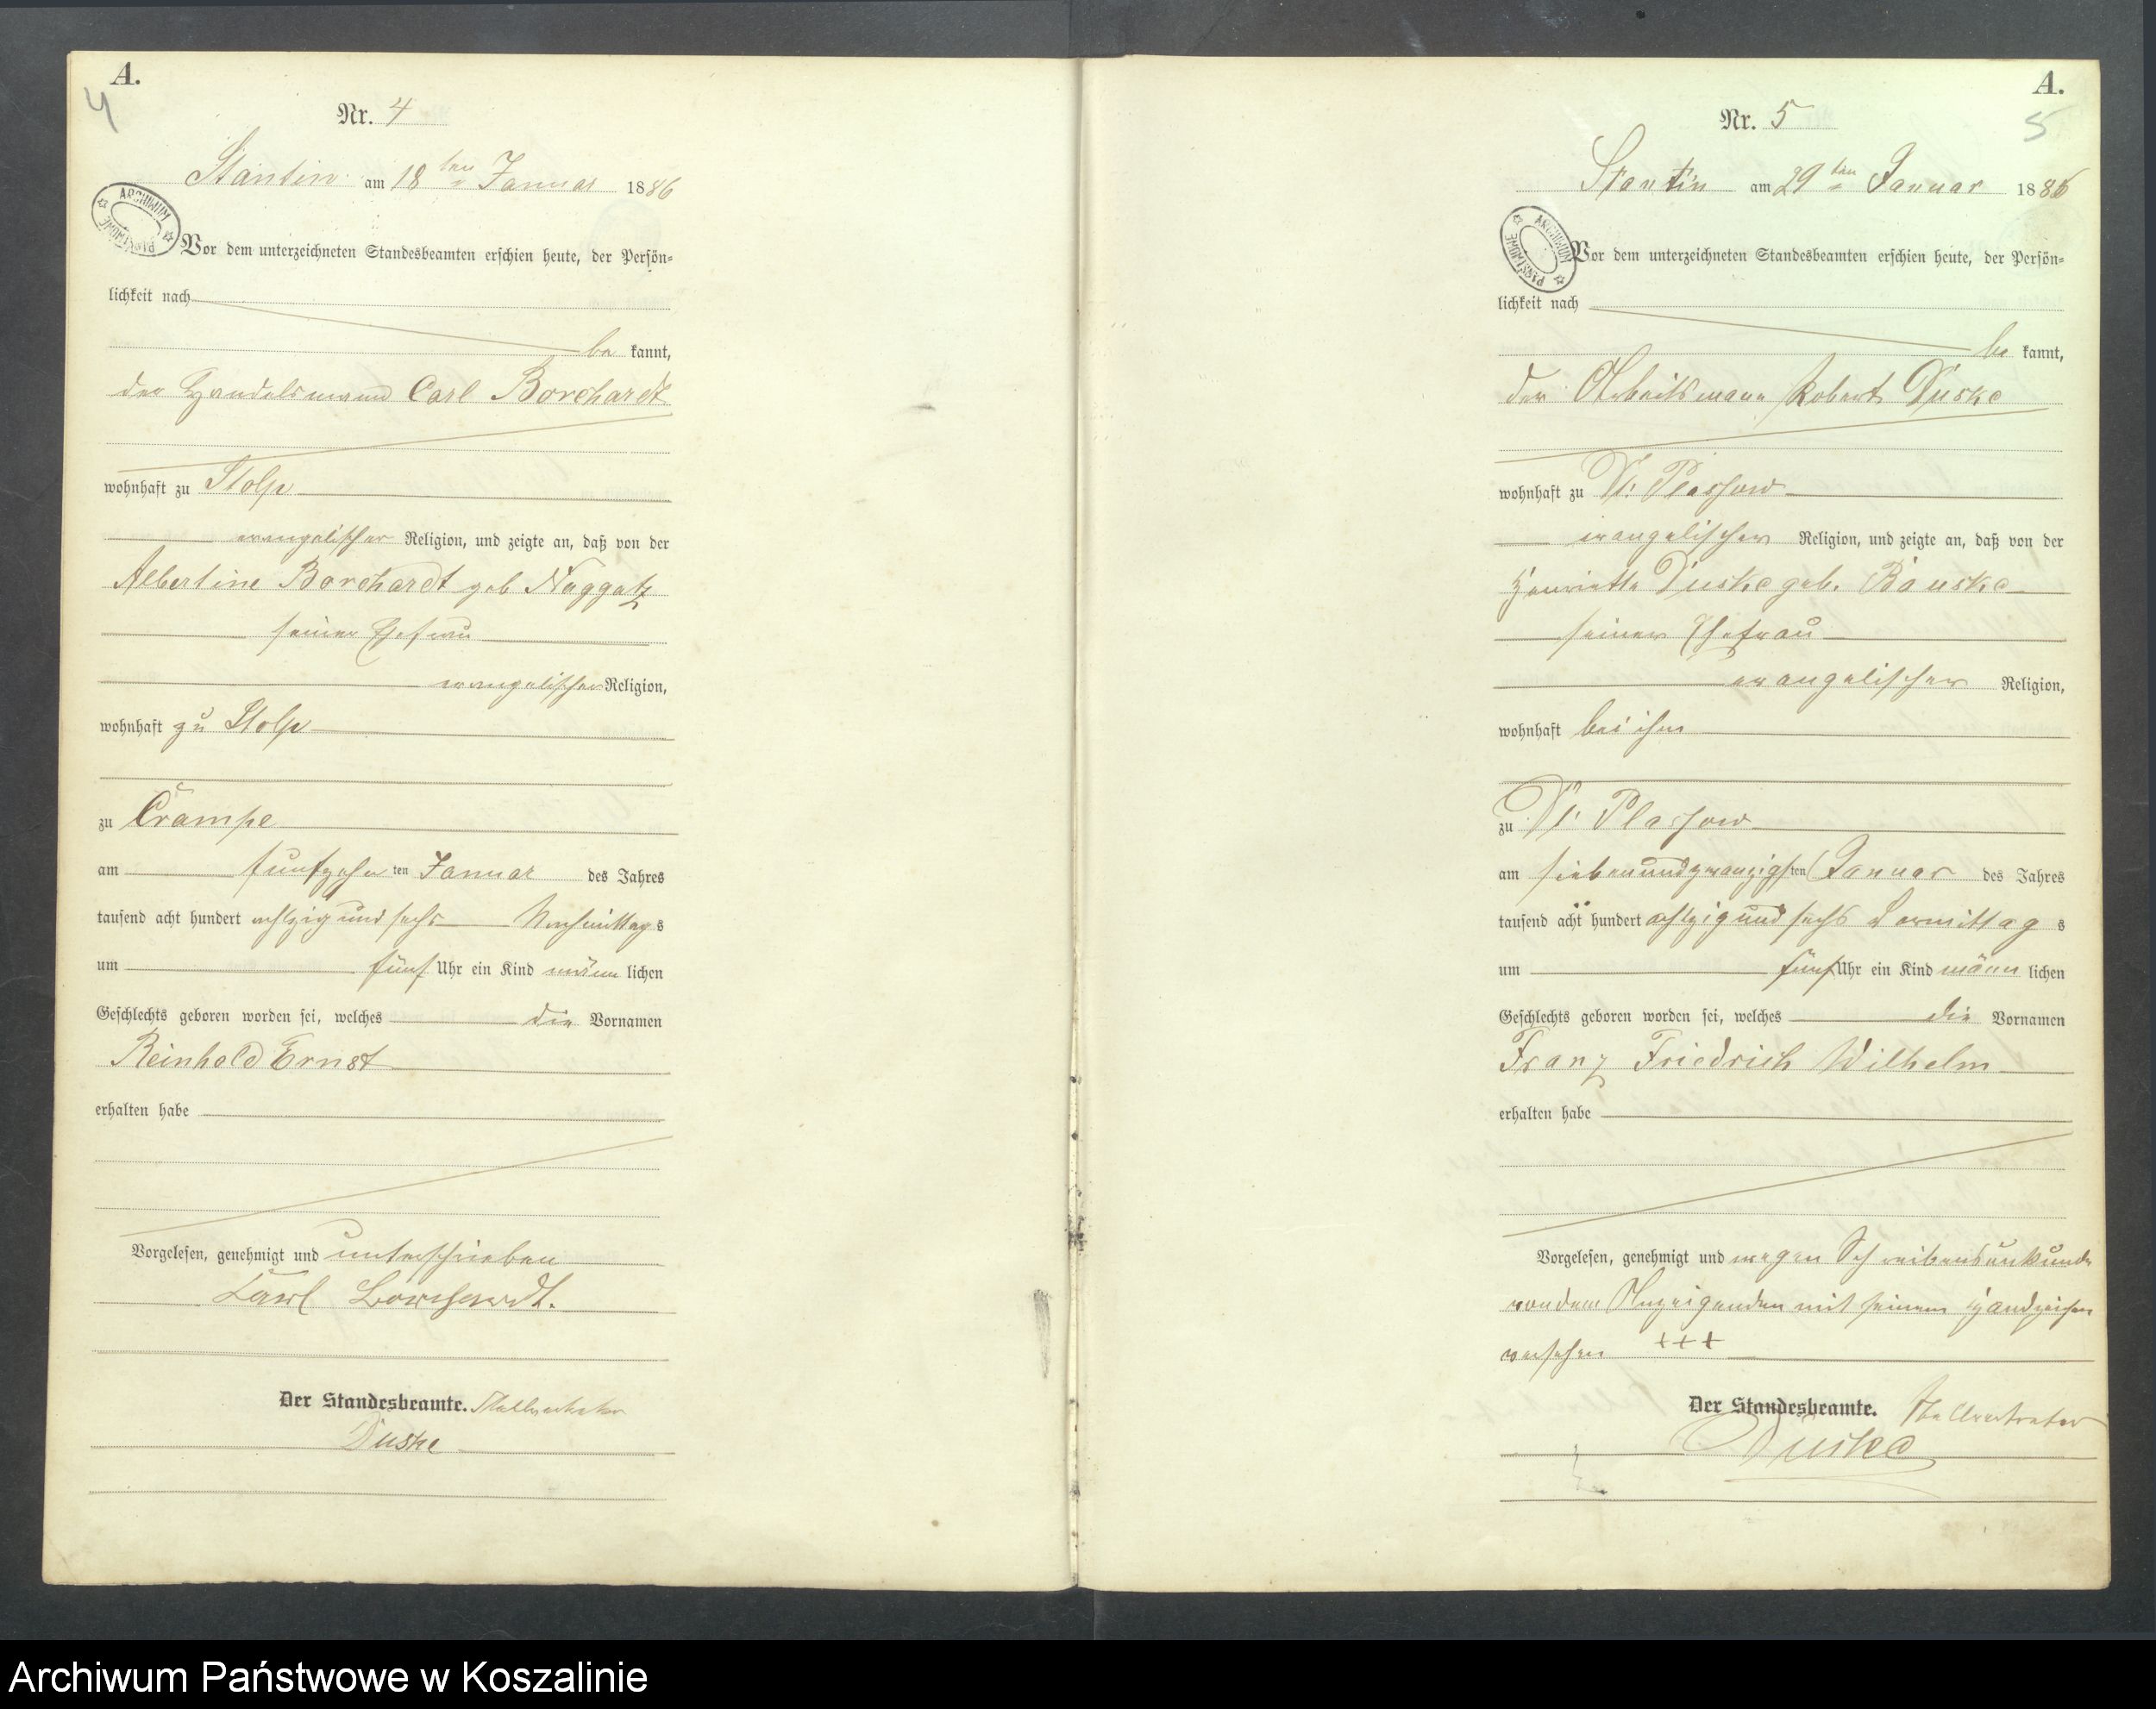 A.
4
Nr. 4
Stantin am 18 ten Januar 1886
ARCHIWUM PAŃSTWOWE
Vor dem unterzeichneten Standesbeamten erschien heute, der Persön-
lichkeit nach
be kannt,
der Handelsmann Carl Borchardt
wohnhaft zu Stolp
evangelischer Religion, und zeigte an, daß von der
Albertine Borchardt geb Noggatz
seiner Ehefrau
evangelischer Religion,
wohnhaft zu Stolp
zu Crampe
am fünfzehn ten Januar des Jahres
tausend acht hundert achtzig und sechs Nachmittag s
um fünf Uhr ein Kind männ lichen
Geschlechts geboren worden sei, welches die Vornamen
Reinhold Ernst
erhalten habe
Vorgelesen, genehmigt und unterschrieben
Carl Borchardt.
Der Standesbeamte. Stellvertreter
Duske
A.
5
Nr. 5
Stantin am 29 ten Januar 1886
ARCHIWUM PAŃSTWOWE
Vor dem unterzeichneten Standesbeamten erschien heute, der Persön-
lichkeit nach
be kannt,
der Arbeitsmann Robert Duske
wohnhaft zu Plassow
evangelischer Religion, und zeigte an, daß von der
Henriette Duske geb. Banske
seiner Ehefrau
evangelischer Religion,
wohnhaft bei ihm
zu Plassow
am siebenundzwanzigsten Januar des Jahres
tausend acht hundert achtzig und sechs Vormittag s
um fünf Uhr ein Kind männ lichen
Geschlechts geboren worden sei, welches die Vornamen
Franz Friedrich Wilhelm
erhalten habe
Vorgelesen, genehmigt und wegen Schreibensunkunde
von dem Anzeigenden mit seinem Handzeichen
versehen +++
Der Standesbeamte. Stellvertreter
Duske
Archiwum Państwowe w Koszalinie